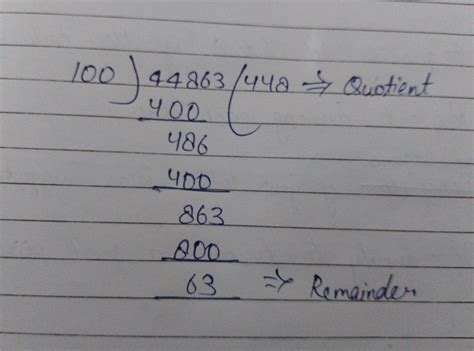 100 ) 44863 ( 448 ⇒ Quotient
400
486
400
863
800
63 ⇒ Remainder